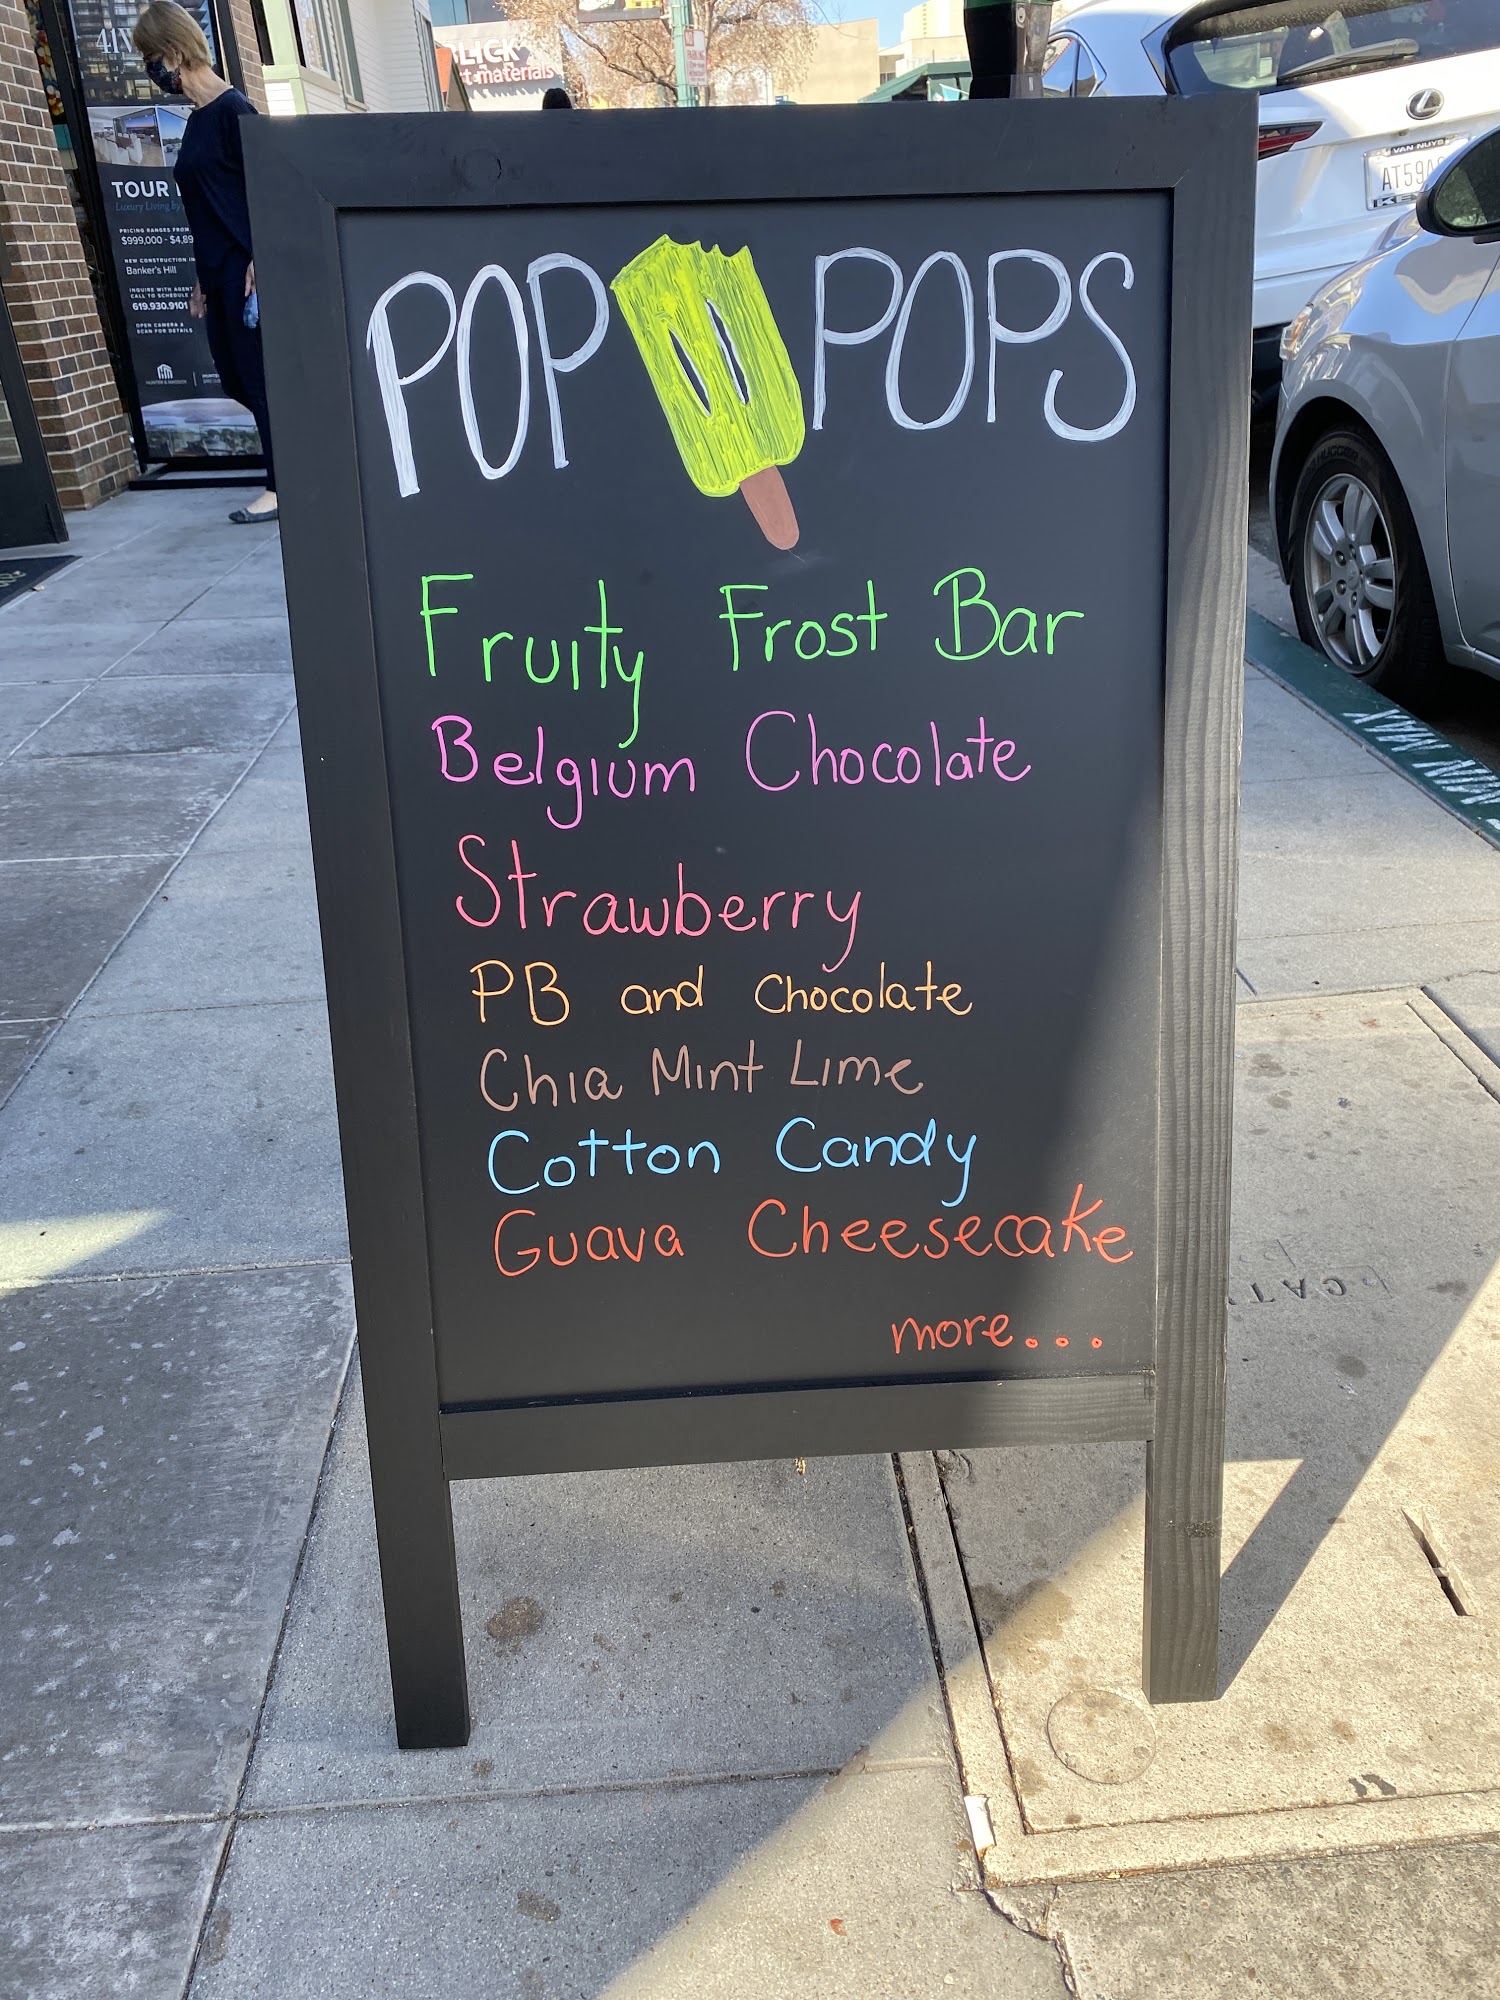 POP POPS
Fruity Frost Bar
Belgium Chocolate
Strawberry
PB and Chocolate
Chia Mint Lime
Cotton Candy
Guava Cheesecake
more...
TOUR
Luxury Living by
PRICING RANGES FROM
$999,000 - $4,89
NEW CONSTRUCTION IN
Banker's Hill
INQUIRE WITH AGENT
CALL TO SCHEDULE
619.930.9101
OPEN CAMERA &
SCAN FOR DETAILS
LICK
t materials
VAN NUYS
AT59A
MIN MAX